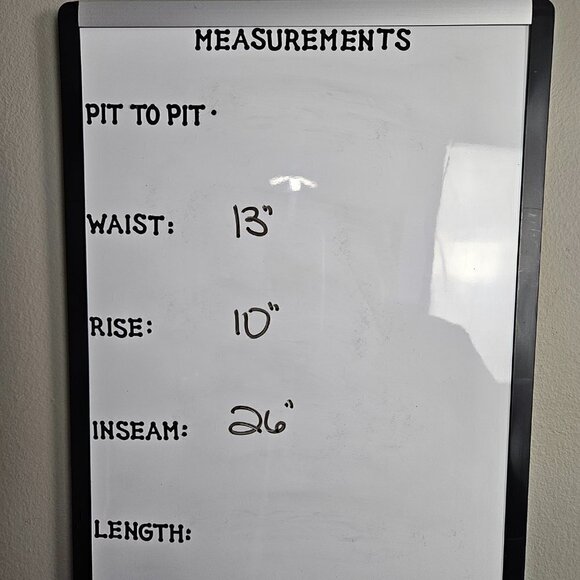 MEASUREMENTS
PIT TO PIT·
WAIST: 13"
RISE: 10"
INSEAM: 26"
LENGTH: